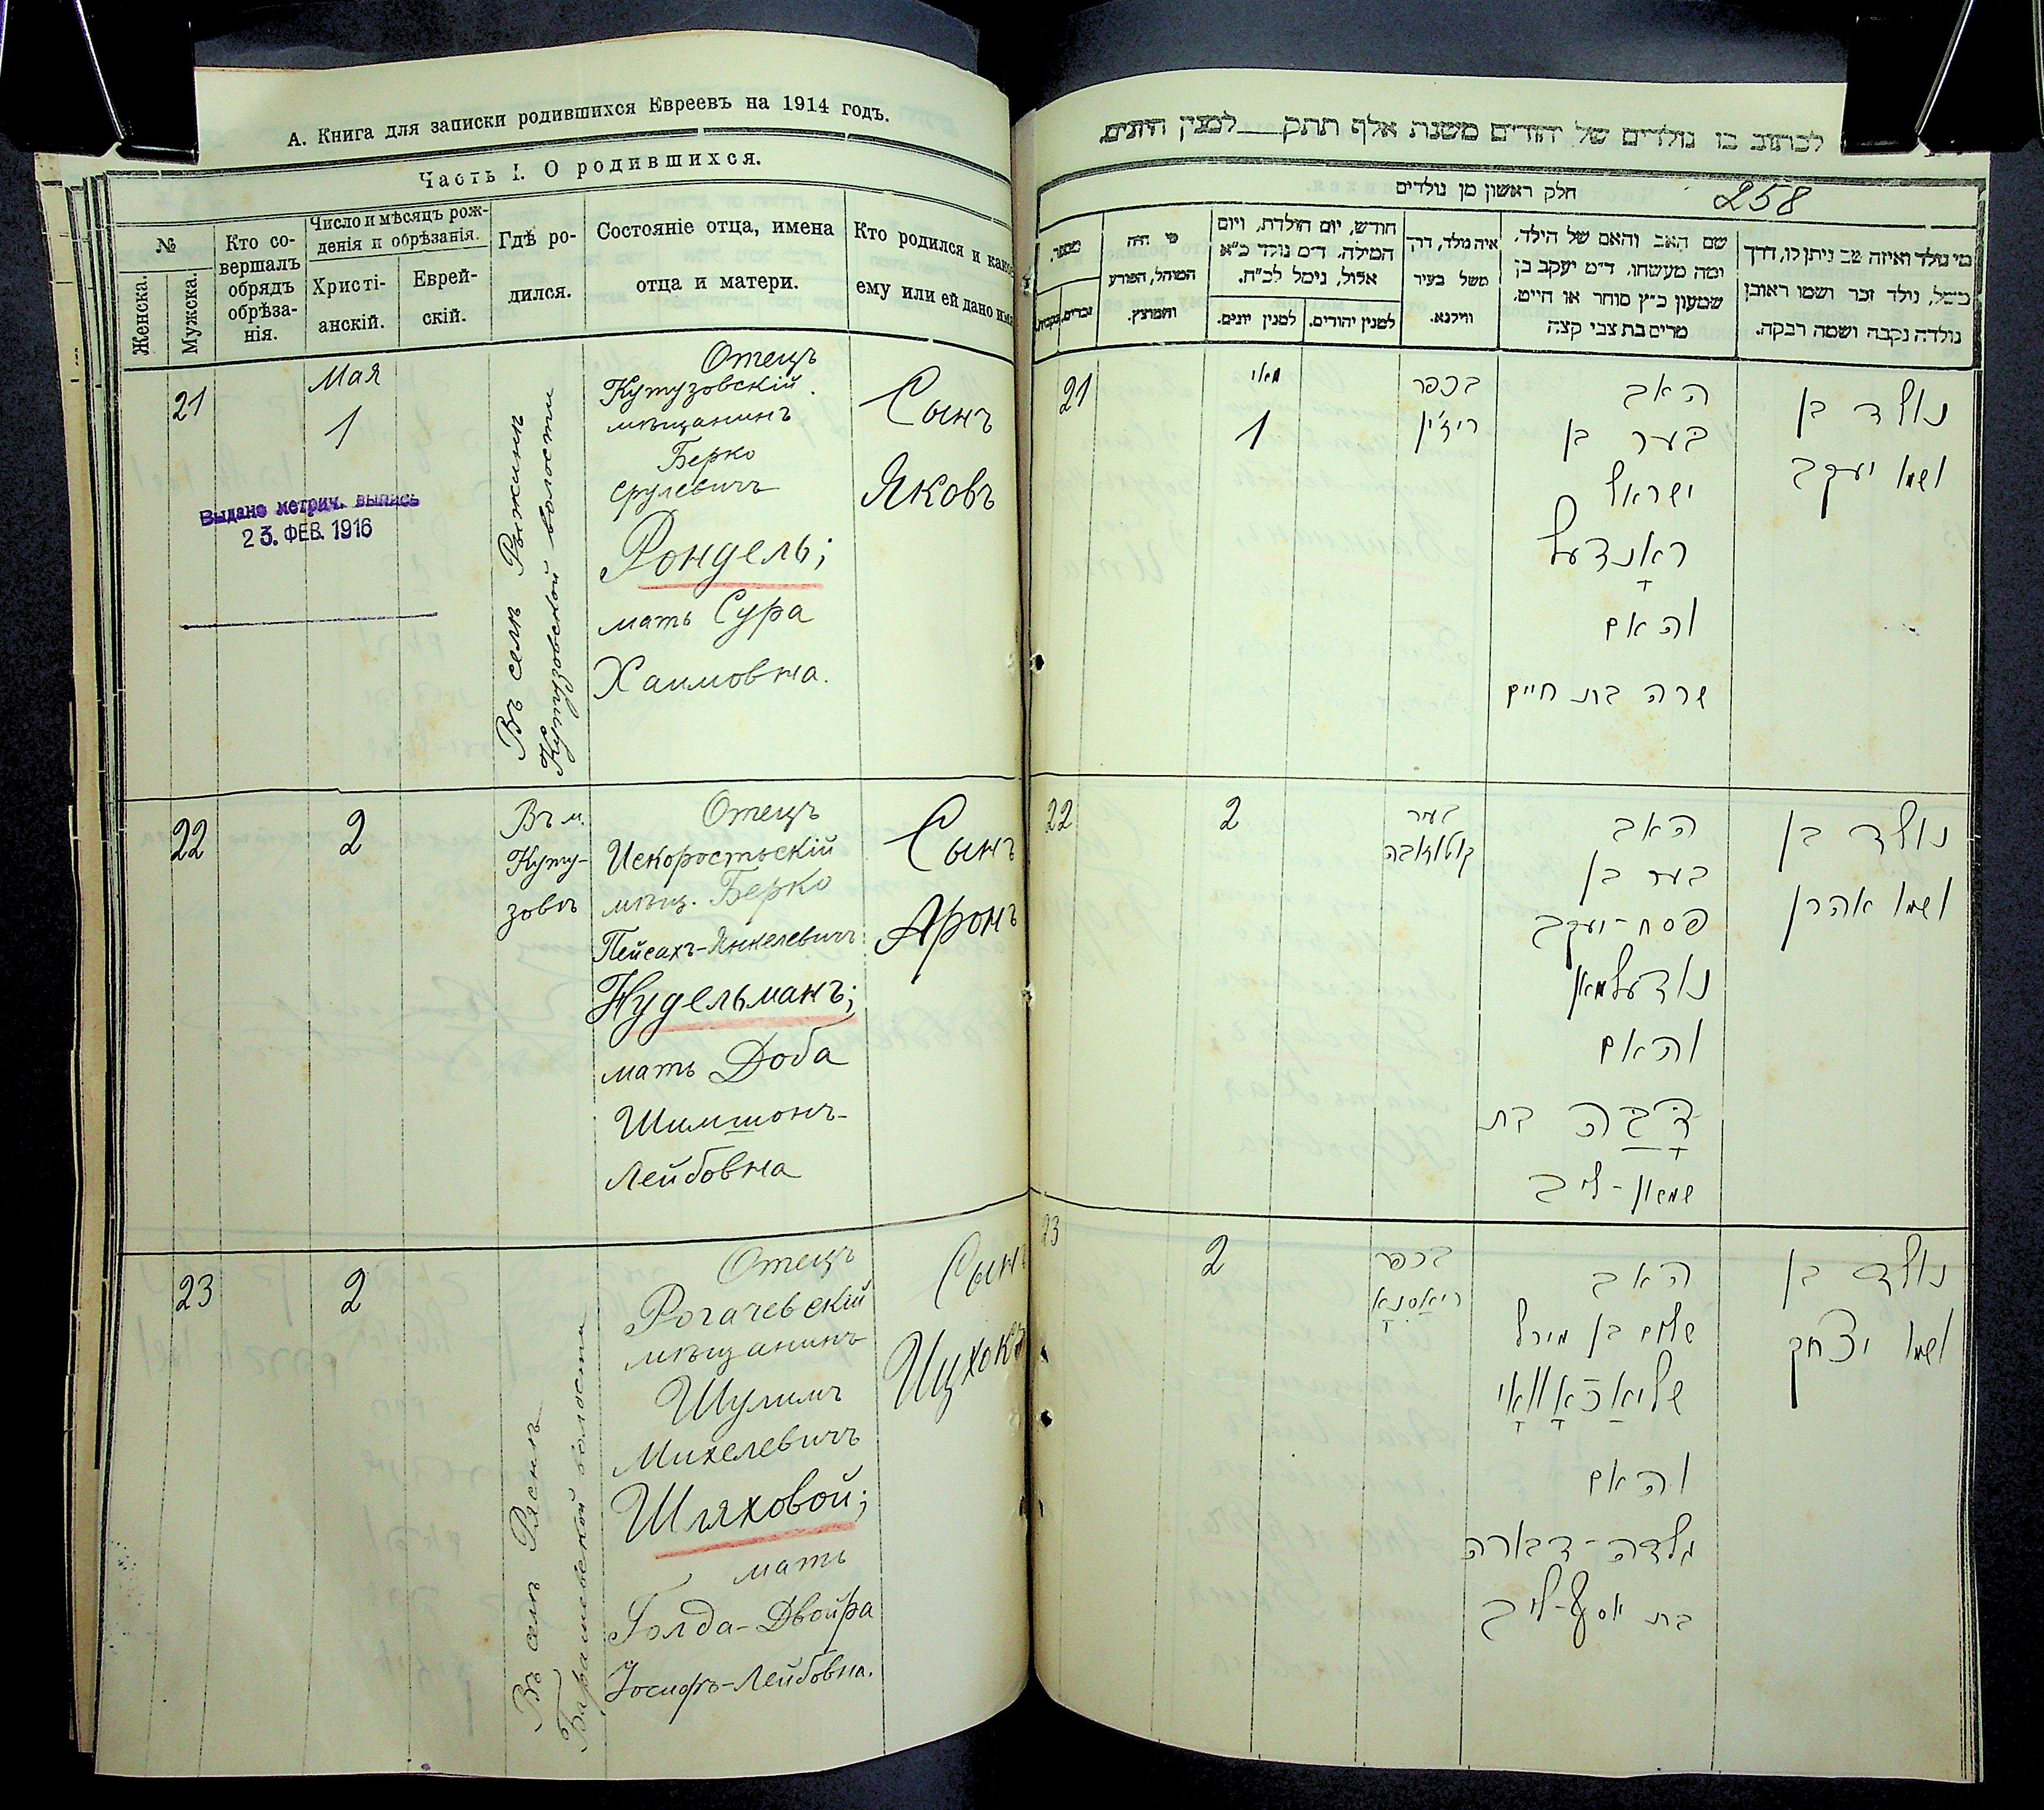 А. Книга для записки родившихся Евреевъ на 1914 годъ.
Часть I. О родившихся.
№
Женска.
Мужска.
Кто со-
вершалъ
обрядъ
обрѣза-
нія.
Число и мѣсяцъ рож-
денія и обрѣзанія.
Христі-
анскій.
Еврей-
скій.
Гдѣ ро-
дился.
Состояніе отца, имена
отца и матери.
Кто родился и како
ему или ей дано имя
21
Мая
1
Выдано метрич. выпись
23. ФЕВ. 1916
Въ селѣ Рыжинѣ
Кутузовской волости
Отецъ
Кутузовскій
мѣщанинъ
Берко
Срулевичъ
Рондель;
мать Сура
Хаимовна.
Сынъ
Яковъ
22
2
Въ м.
Куту-
зовѣ
Отецъ
Искоростьскій
мѣщ. Берко
Пейсахъ-Янкелевичъ
Нудельманъ;
мать Доба
Шимшонъ-
Лейбовна
Сынъ
Аронъ
23
2
Въ селѣ Ряснѣ
Барашевской волости
Отецъ
Рогачевскій
мѣщанинъ
Шулимъ
Михелевичъ
Шляховой;
мать
Голда-Двойра
Іосифъ-Лейбовна.
Сынъ
Ицхокъ
לכתוב בו נולדים של יהודים משנת אלף תתק למנין היונים
חלק ראשון מן נולדים
258
מספר,
זכרים.
נקבות.
מי היה
המוהל, הפורע
והמוצץ.
חודש, יום הולדת, ויום
המילה. ד״מ נולד כ״א
אלול, נימול לכ״ח.
למנין יונים.
למנין יהודים.
איה נולד, דרך
משל בעיר
ווילנא.
שם האב והאם של הילד,
ומה מעשהו. ד״מ יעקב בן
שמעון כ״ץ סוחר או חייט,
מרים בת צבי קצה
מי נולד ואיזה שם ניתן לו, דרך
משל, נולד זכר ושמו ראובן
נולדה נקבה ושמה רבקה.
21
מאי
1
בכפר
ריז׳ין
האב
בער בן
ישראל
ראָנדעל
והאם
שרה בת חיים
נולד בן
ושמו יעקב
22
2
בעיר
קוטוזובה
האב
בער בן
פסח-יעקב
נודעלמאן
והאם
דָבה בת
שמשון-ליב
נולד בן
ושמו אהרן
23
2
בכפר
ריאַסנאָ
האב
שלום בן מיכל
שליאַכאָוואָי
והאם
גולדה-דבורה
בת יוסף-ליב
נולד בן
ושמו יצחק